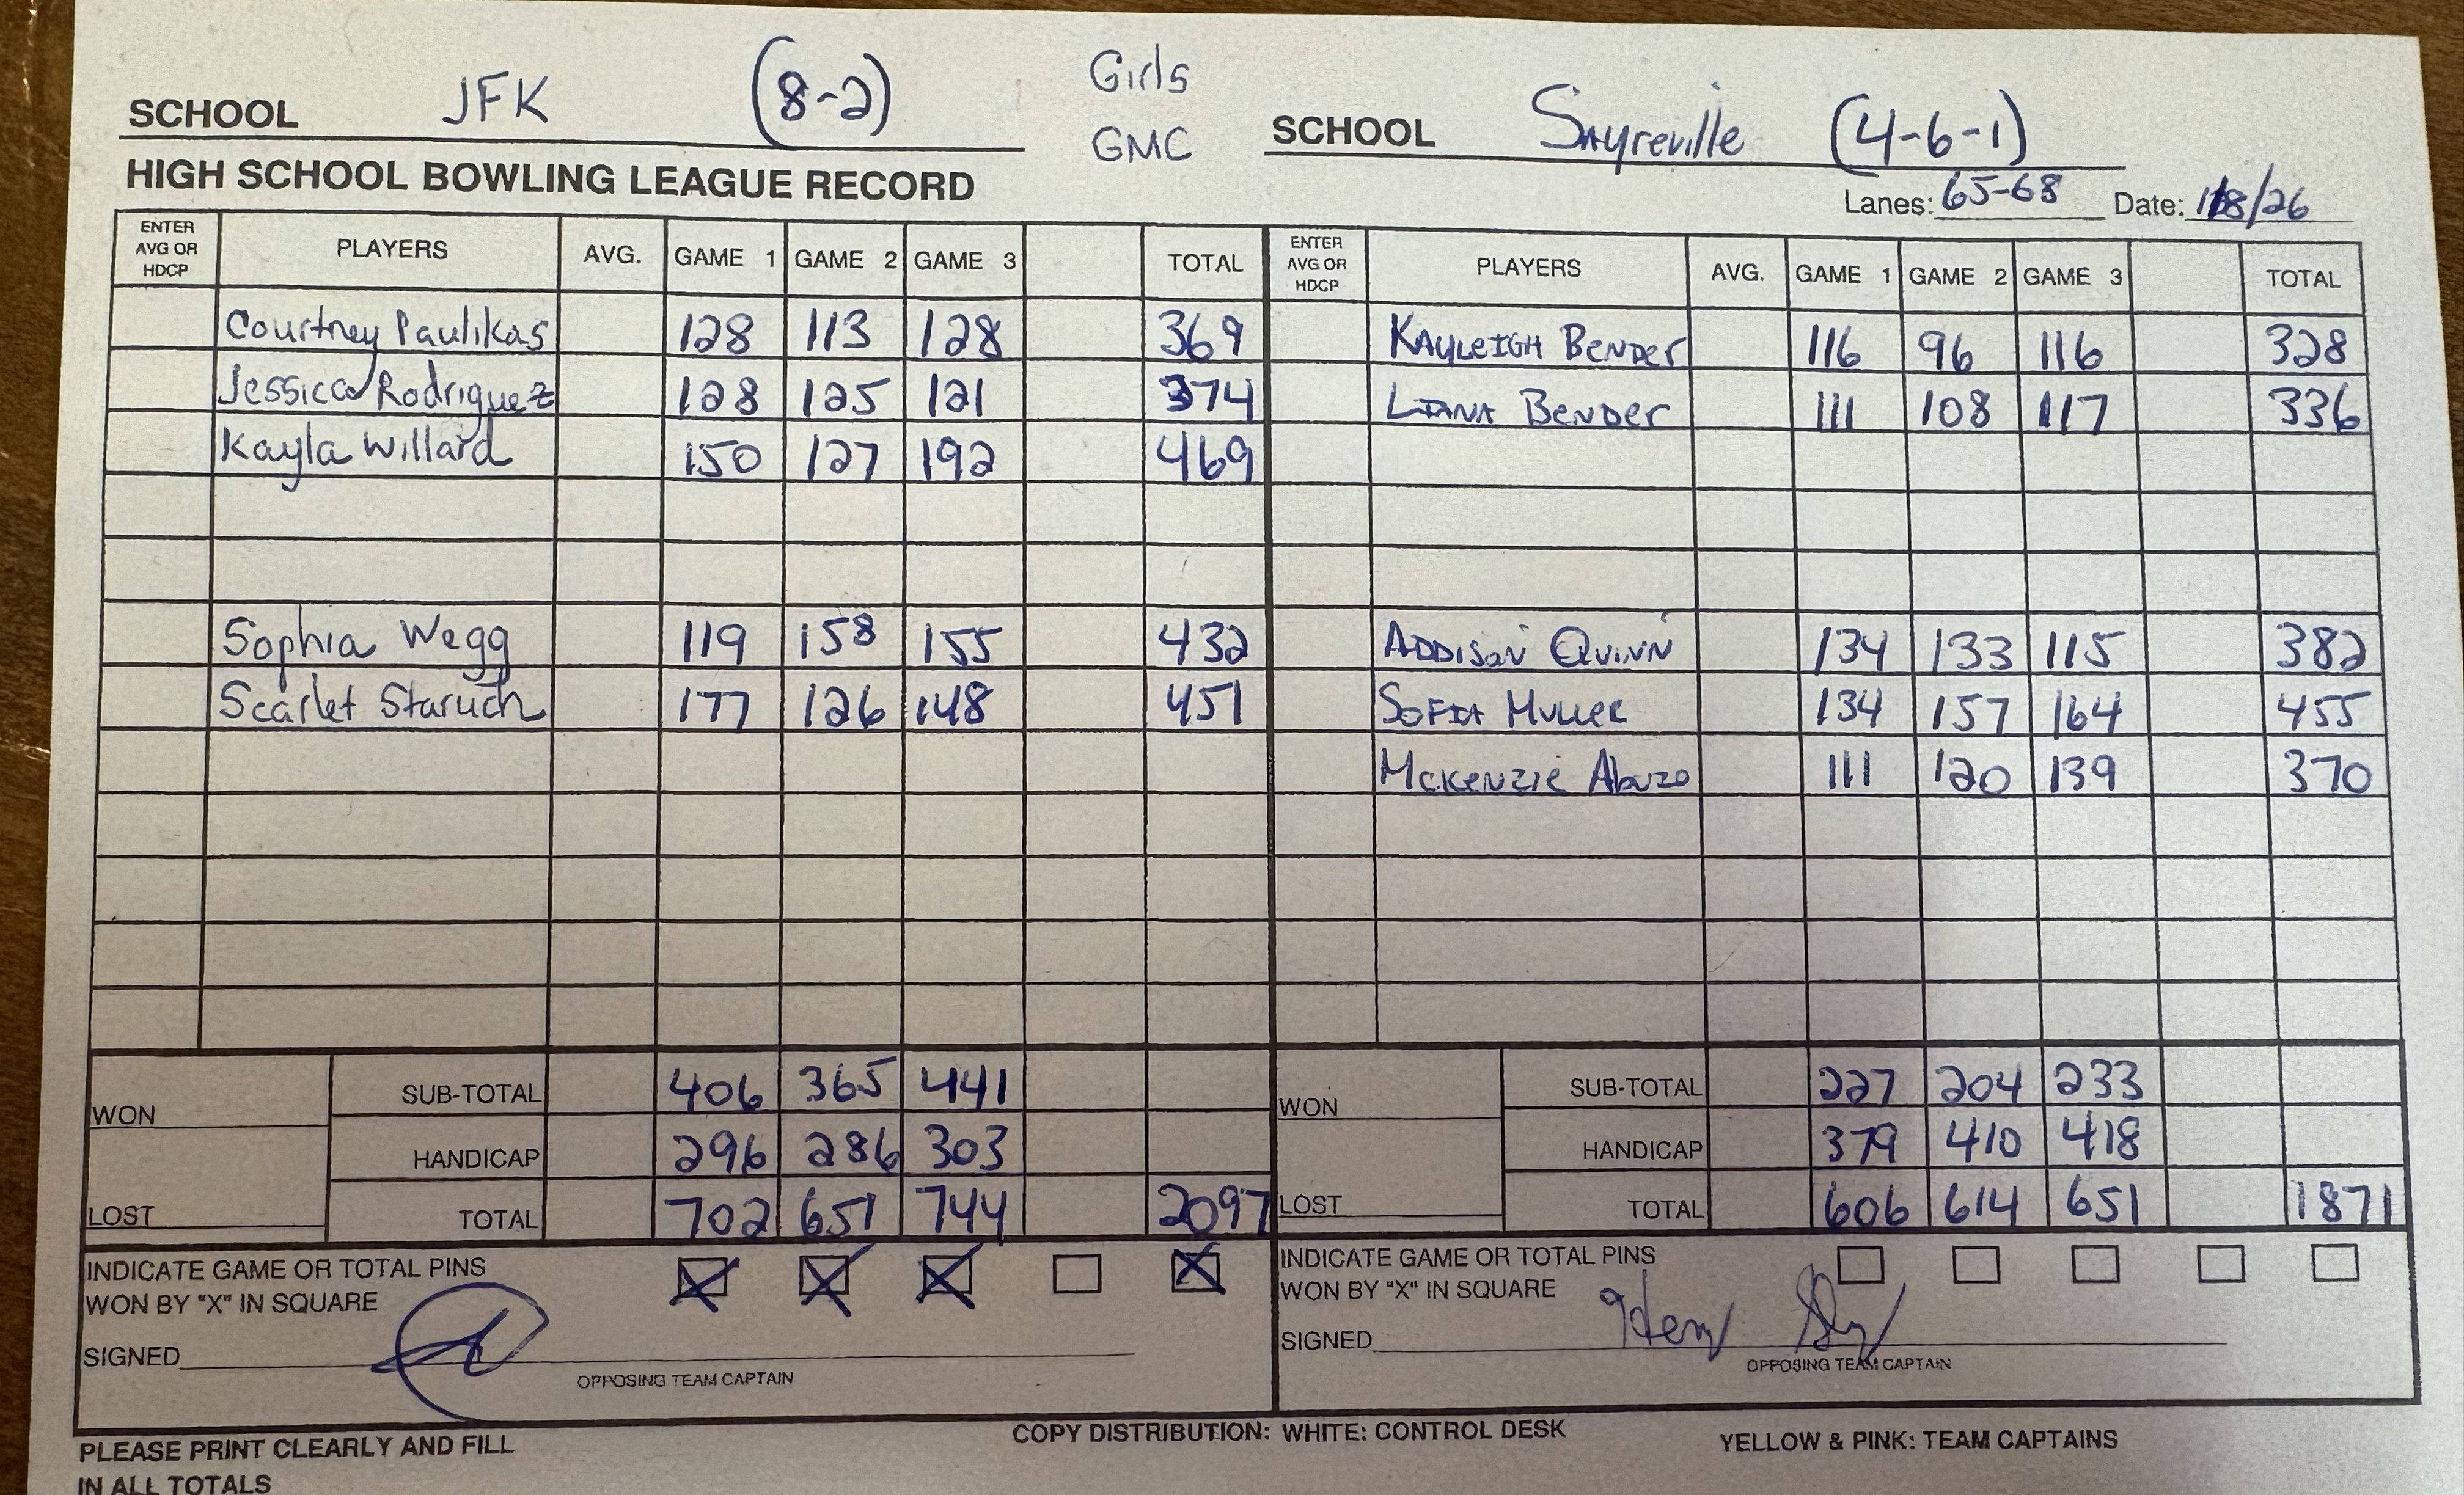 SCHOOL JFK (8-2)
Girls
GMC
SCHOOL Sayreville (4-6-1)
HIGH SCHOOL BOWLING LEAGUE RECORD
Lanes: 65-68 Date: 1/8/26
ENTER AVG OR HDCP PLAYERS AVG. GAME 1 GAME 2 GAME 3 TOTAL ENTER AVG OR HDCP PLAYERS AVG. GAME 1 GAME 2 GAME 3 TOTAL
Courtney Paulikas 128 113 128 369 KAYLEIGH BENDER 116 96 116 328
Jessica Rodriguez 128 125 121 374 LIANA BENDER 111 108 117 336
Kayla Willard 150 127 192 469
Sophia Wegg 119 158 155 432 ADDISON QUINN 134 133 115 382
Scarlet Staruch 177 126 148 451 SOFIA MULLER 134 157 164 455
McKENZIE 111 120 139 370
WON SUB-TOTAL 406 365 441 WON SUB-TOTAL 227 204 233
HANDICAP 296 286 303 HANDICAP 379 410 418
LOST TOTAL 702 651 744 2097 LOST TOTAL 606 614 651 1871
INDICATE GAME OR TOTAL PINS X X X X INDICATE GAME OR TOTAL PINS
WON BY "X" IN SQUARE WON BY "X" IN SQUARE
SIGNED SIGNED
OPPOSING TEAM CAPTAIN OPPOSING TEAM CAPTAIN
PLEASE PRINT CLEARLY AND FILL COPY DISTRIBUTION: WHITE: CONTROL DESK YELLOW & PINK: TEAM CAPTAINS
IN ALL TOTALS